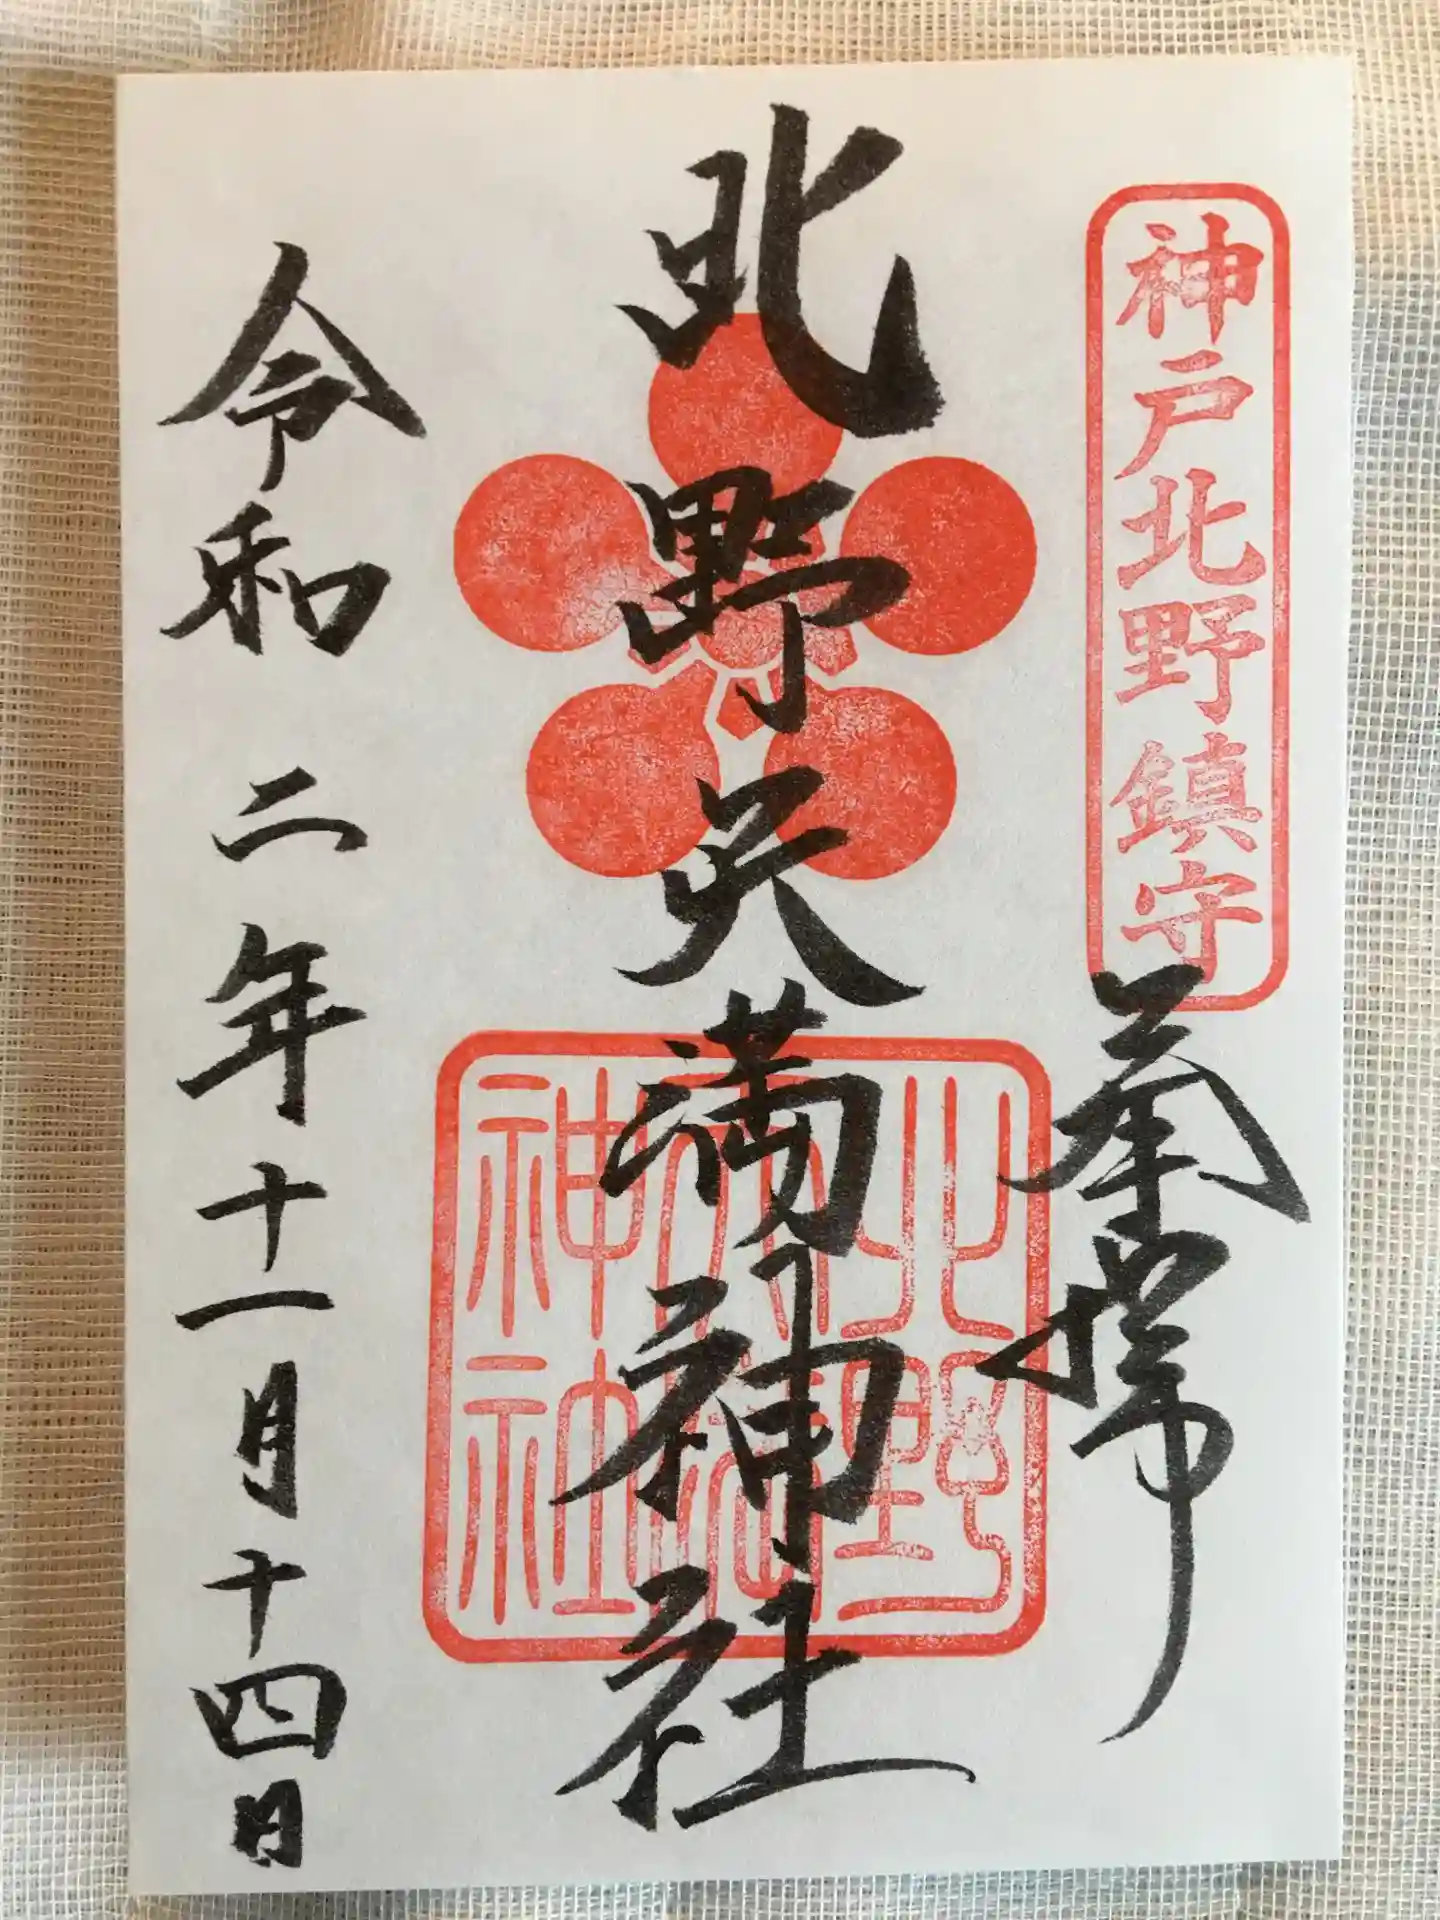 神戸北野鎮守
奉拝
北野天満神社
北野天満神社
令和二年十一月十四日